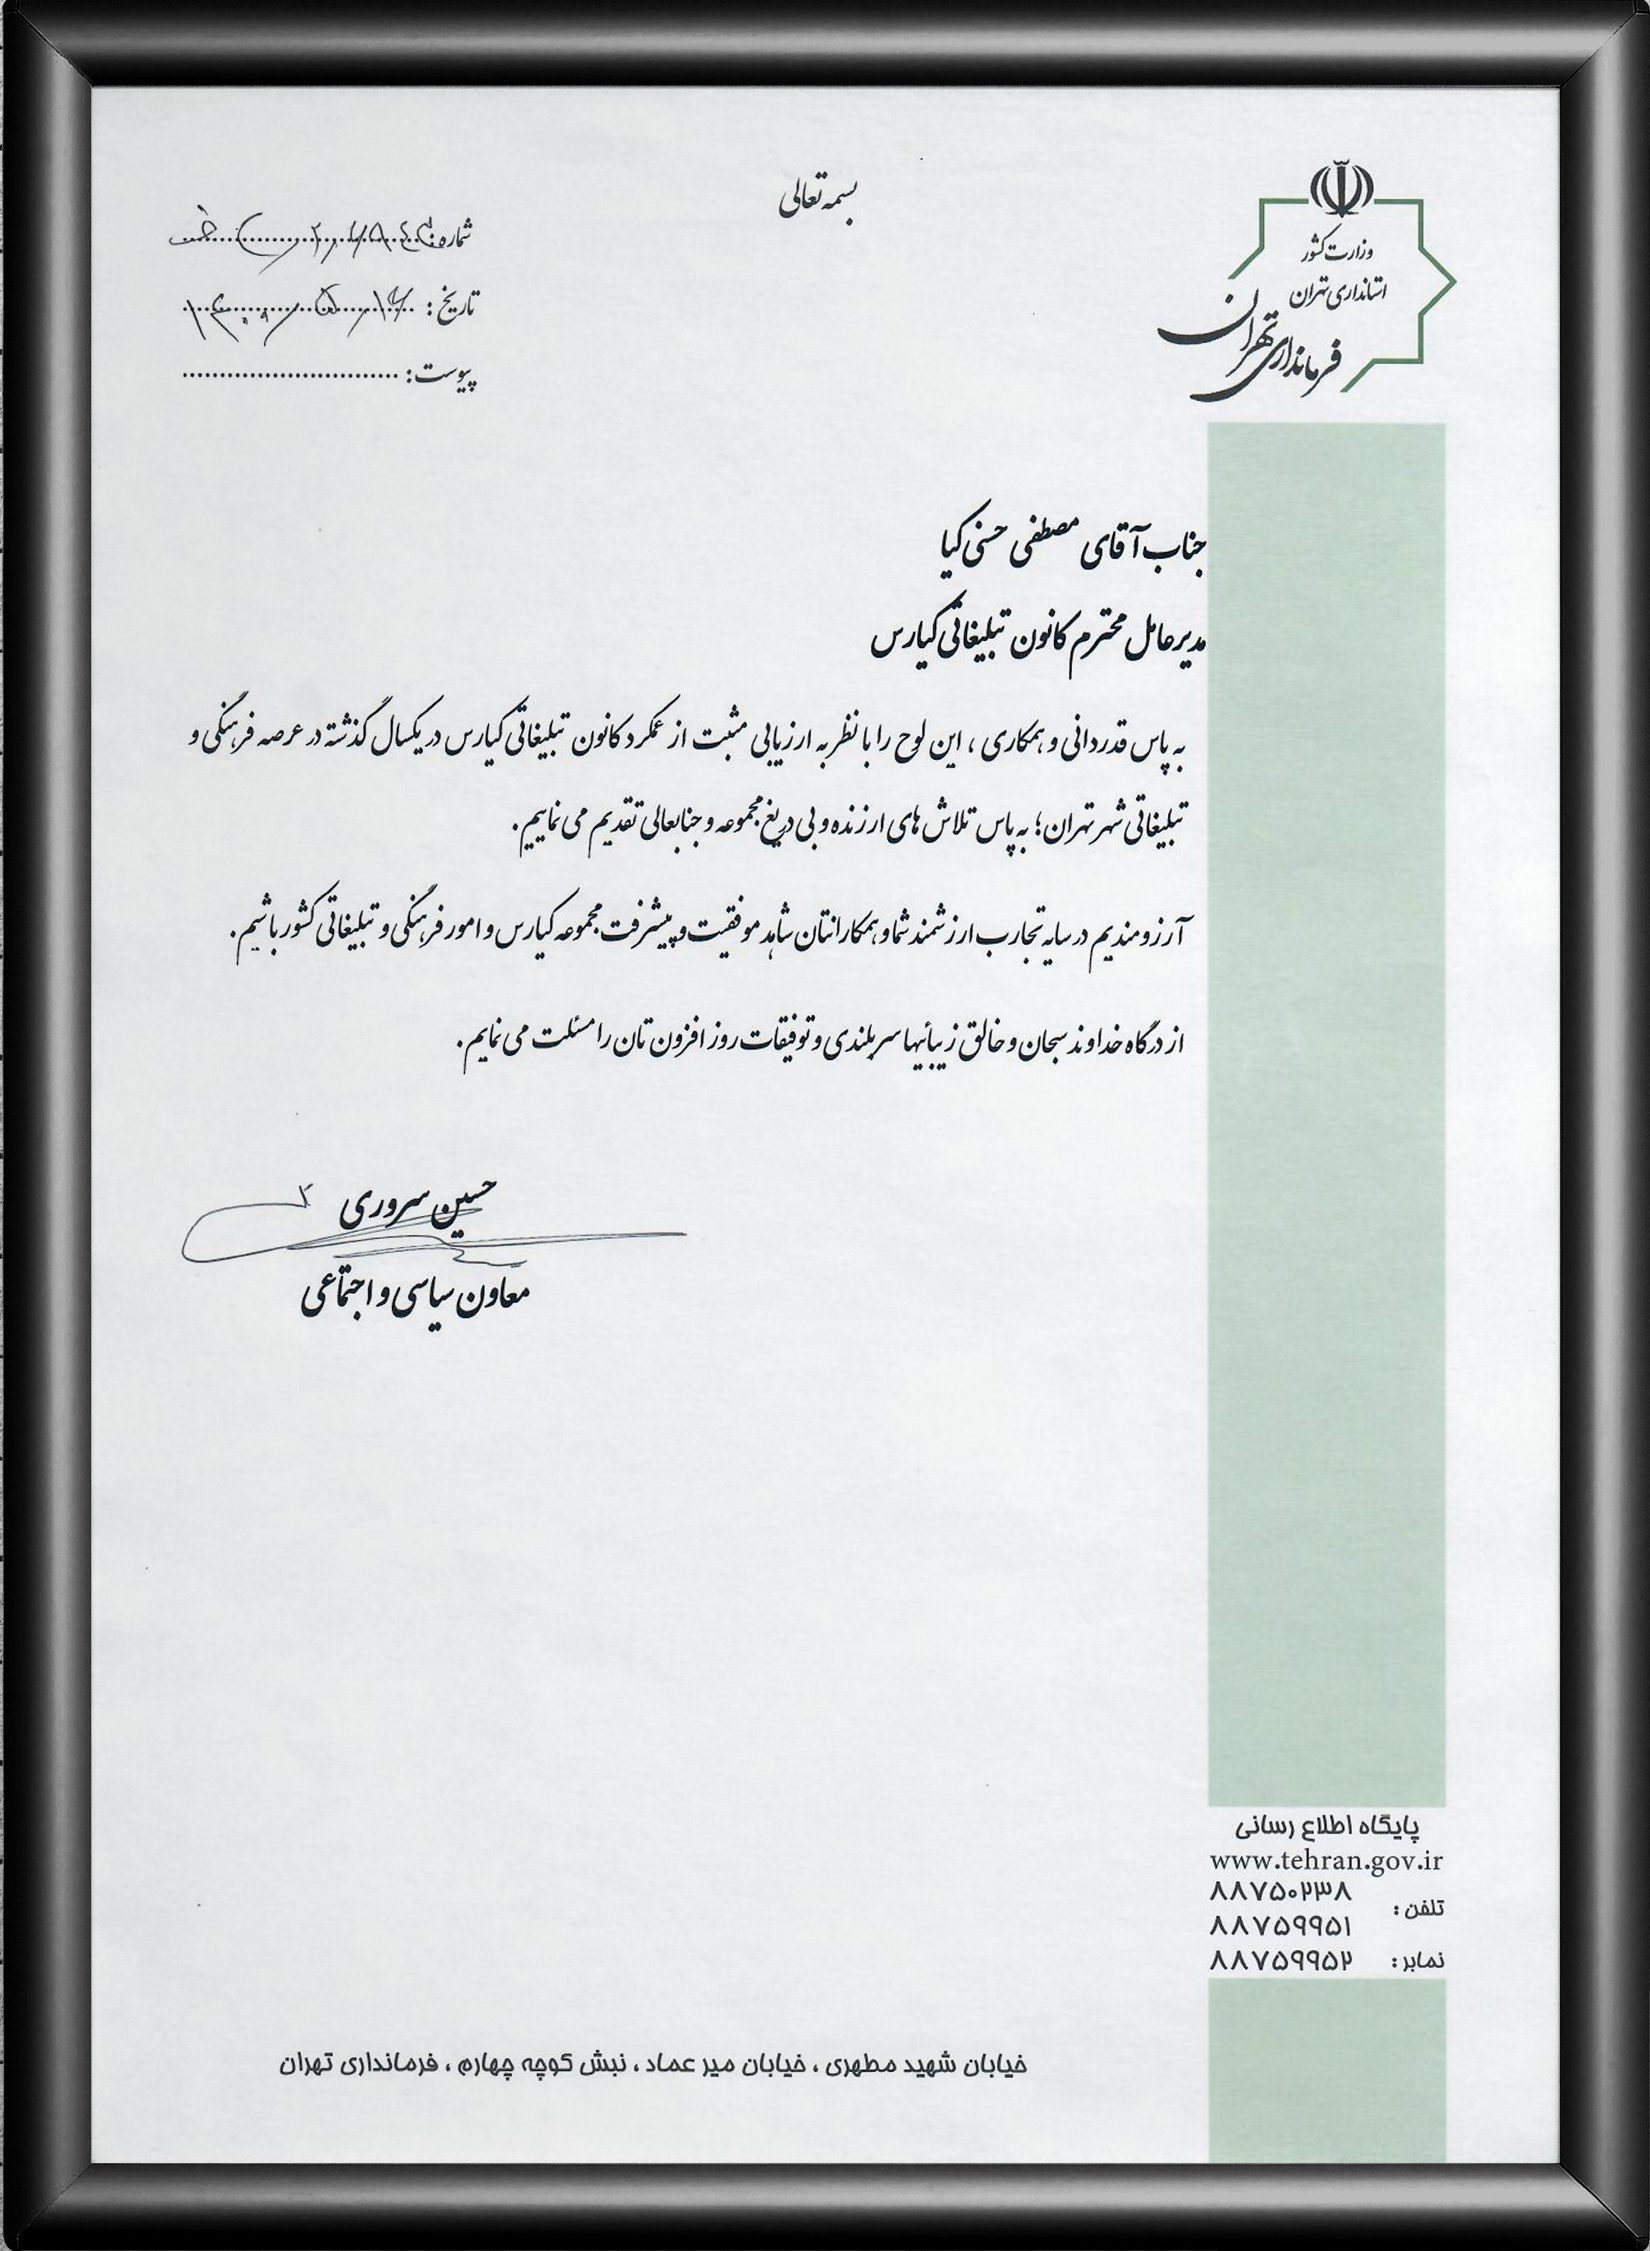 بسمه تعالی
وزارت کشور
استانداری تهران
فرمانداری تهران
شماره:
تاریخ:
پیوست:
جناب آقای مصطفی حسنی کیا
مدیرعامل محترم کانون تبلیغاتی کیارس
به پاس قدردانی و همکاری ، این لوح را با نظر به ارزیابی مثبت از عملکرد کانون تبلیغاتی کیارس در یکسال گذشته در عرصه فرهنگی و
تبلیغاتی شهر تهران؛ به پاس تلاش های ارزنده و بی دریغ مجموعه و جنابعالی تقدیم می نماییم.
آرزومندیم در سایه تجارب ارزشمند شما و همکارانتان شاهد موفقیت و پیشرفت مجموعه کیارس و امور فرهنگی و تبلیغاتی کشور باشیم.
از درگاه خداوند سبحان و خالق زیبائیها سربلندی و توفیقات روز افزون تان را مسئلت می نمایم.
حسین سروری
معاون سیاسی و اجتماعی
پایگاه اطلاع رسانی
www.tehran.gov.ir
تلفن : ۸۸۷۵۰۲۳۸
۸۸۷۵۹۹۵۱
نمابر : ۸۸۷۵۹۹۵۲
خیابان شهید مطهری ، خیابان میر عماد ، نبش کوچه چهارم ، فرمانداری تهران